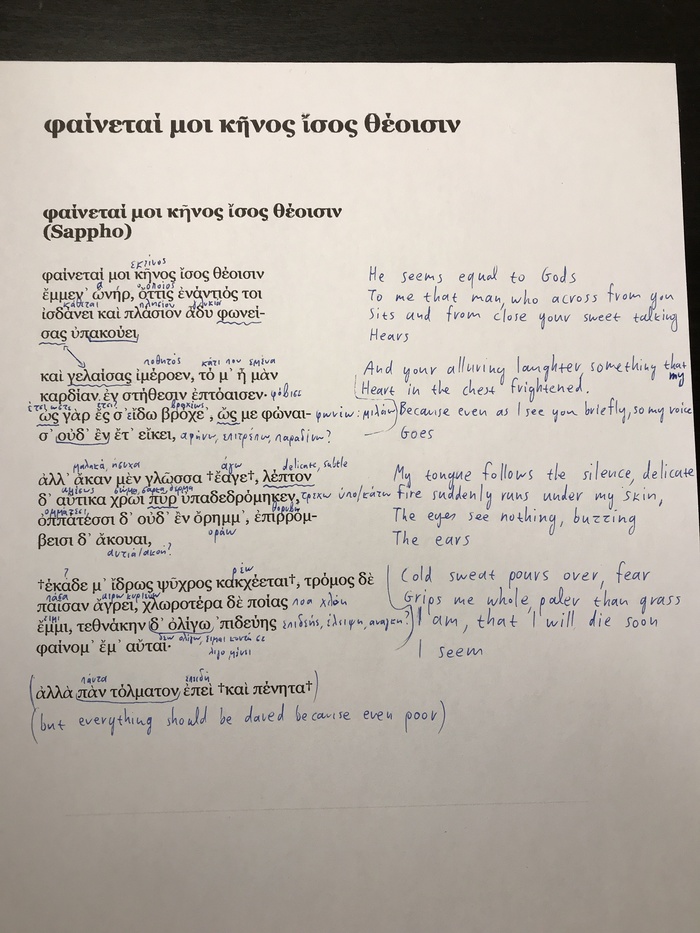 φαίνεταί μοι κῆνος ἴσος θέοισιν
φαίνεταί μοι κῆνος ἴσος θέοισιν
(Sappho)
φαίνεταί μοι κῆνος ἴσος θέοισιν
He seems equal to Gods
ὁποῖος
ἔμμεν' ὤνηρ, ὄττις ἐνάντιός τοι
To me that man, who across from you
κάθεται πλησίον γλυκιά
ἰσδάνει καὶ πλάσιον ἆδυ φωνεί-
Sits and from close your sweet talking
σας ὐπακούει
Hears
ποθητός κάτι που εμένα
καὶ γελαίσας ἰμέροεν, τό μ' ἦ μὰν
And your alluring laughter, something that my
καρδίαν ἐν στήθεσιν ἐπτόαισεν· φόβισε
Heart in the chest frightened.
ὠς γὰρ ἔς σ' ἴδω βρόχε', ὤς με φώναι- φωνέω: μιλάω
Because even as I see you briefly, so my voice
σ' οὐδ' ἒν ἔτ' εἴκει, αφήνω, επιτρέπω, παραδίνω?
Goes
μαλακά, ήσυχα άγω delicate, subtle
ἀλλ' ἄκαν μὲν γλῶσσα †ἔαγε†, λέπτον
My tongue follows the silence, delicate
αμέσως σώμα, σάρκα, δέρμα
δ' αὔτικα χρῶι πῦρ ὐπαδεδρόμηκεν, τρέχω ὑπο/κάτω
Fire suddenly runs under my skin,
ὀππάτεσσι δ' οὐδ' ἒν ὄρημμ', ἐπιρρόμ-
The eyes see nothing, buzzing
βεισι δ' ἄκουαι, ὁράω
The ears
αυτιά/ακοή?
? ρέω
†ἔκαδε μ' ἴδρως ψῦχρος κακχέεται†, τρόμος δὲ
Cold sweat pours over, fear
παῖσαν ἄγρει, χλωροτέρα δὲ ποίας ποα χλόη
Grips me whole, paler than grass
είμι
ἔμμι, τεθνάκην δ' ὀλίγω 'πιδεύης επιδεής, έλλειψη, ανάγκη?
I am, that I will die soon
φαίνομ' ἔμ' αὔται·
I seem
πάντα επειδή
(ἀλλὰ πὰν τόλματον ἐπεὶ †καὶ πένητα†)
(but everything should be dared because even poor)